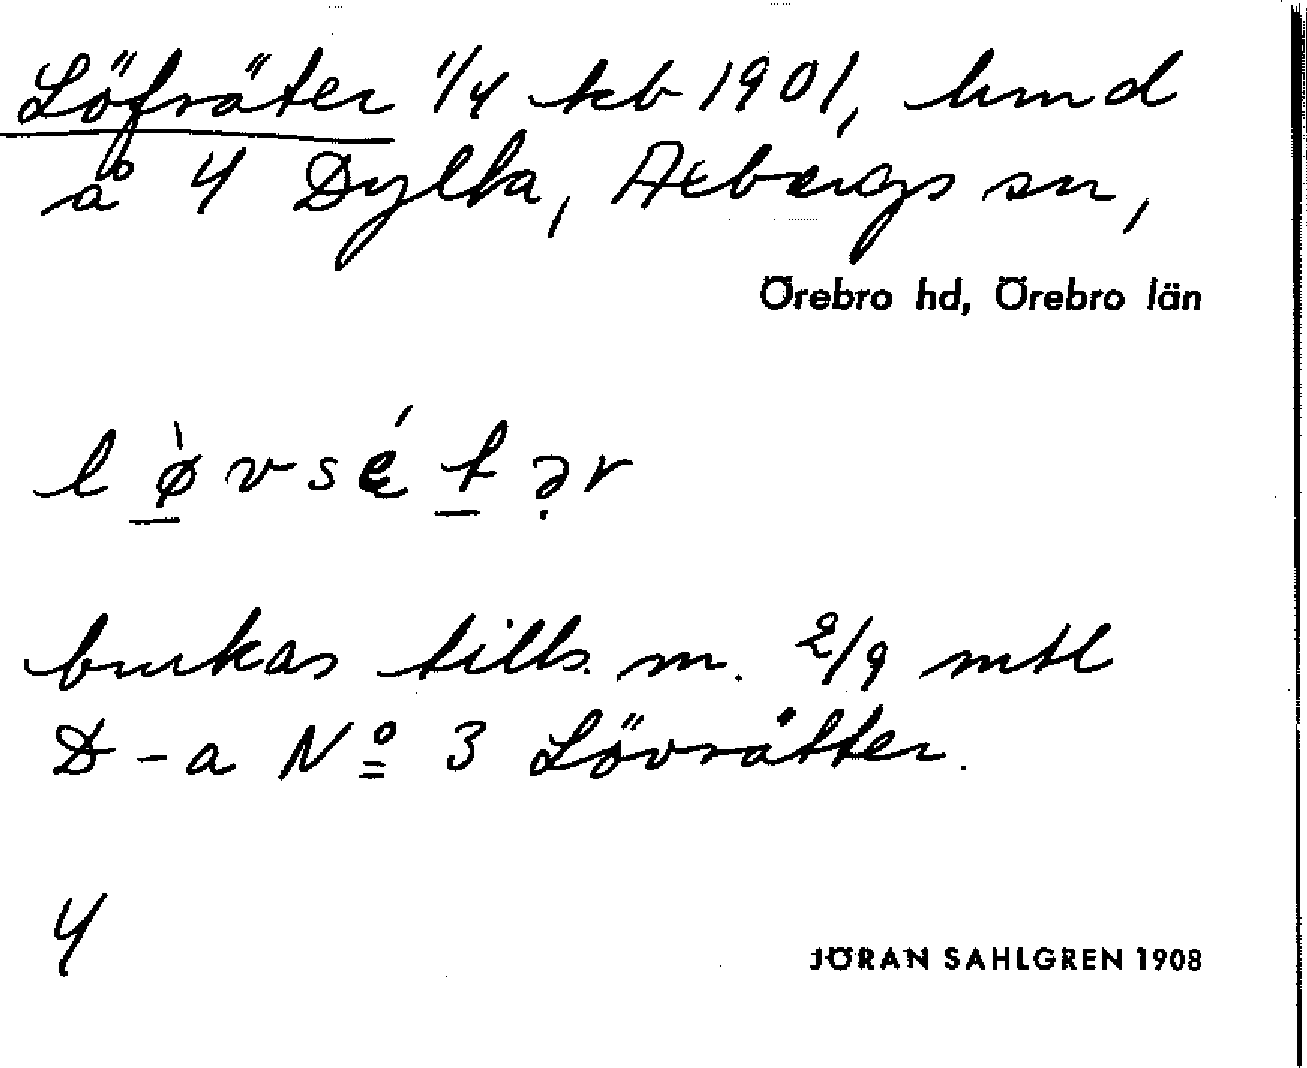 Löfräter 1/4 kb 1901, hmd
å 4 Dylta, Axbergs sn,
Örebro hd, Örebro län
lø̀vsétər
brukas tills. m. 2/9 mtl
D-a Nº 3 Lövråtter.
4
JÖRAN SAHLGREN 1908